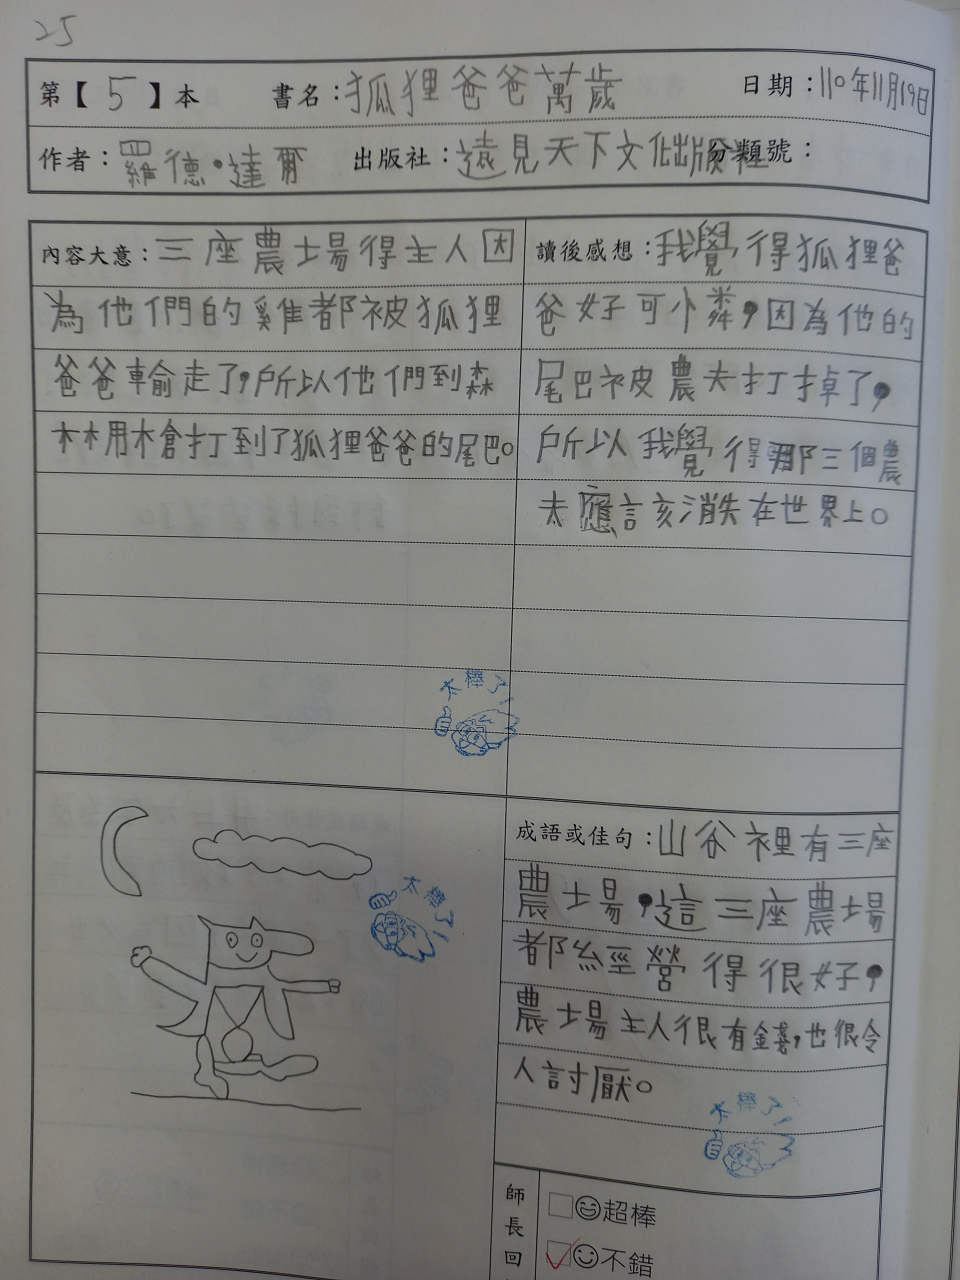 25
第【5】本 書名：狐狸爸爸萬歲 日期：110年11月19日
作者：羅德·達爾 出版社：遠見天下文化出版社 分類號：
內容大意：三座農場得主人因
為他們的雞都被狐狸
爸爸輸走了，所以他們到森
林用槍打到了狐狸爸爸的尾巴。
讀後感想：我覺得狐狸爸
爸好可小粦，因為他的
尾巴被農夫打掉了，
所以我覺得那三個農
夫應該消失在世界上。
太棒了！
太棒了！
成語或佳句：山谷裡有三座
農場，這三座農場
都經營得很好，
農場主人很有錢，也很令
人討厭。
太棒了！
師長回
超棒
不錯